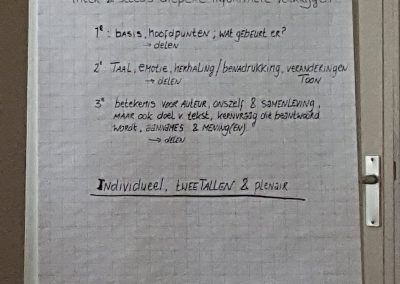 diepere informatie
1e: basis, hoofdpunten; wat gebeurt er?
→ delen
2e TAAL, EMOTIE, HERHALING/BENADRUKKING, VERANDERINGEN
→ DELEN TOON
3e betekenis voor AUTEUR, ONSZELF & SAMENLEVING,
MAAR ook doel v. tekst, KERNVRAAG die beantwoord
wordt, & MENING(EN).
→ DELEN
Individueel, TWEETALLEN & plenair